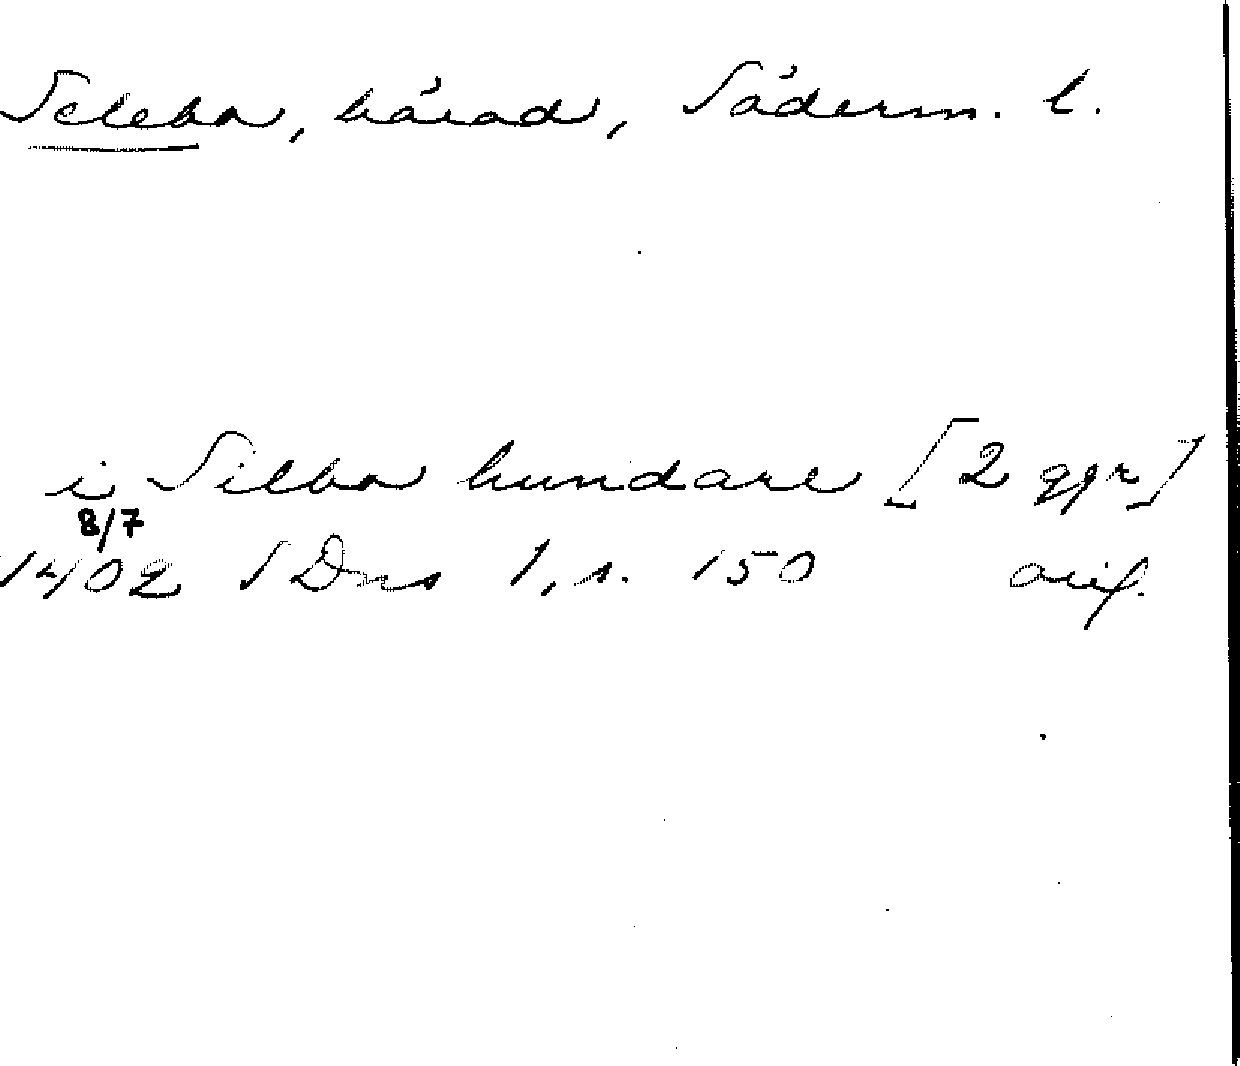 Selebo, härad, Söderm. l.
i Silbo hundare [2 ggr]
8/7
1402 SDns 1, s. 150 orig.